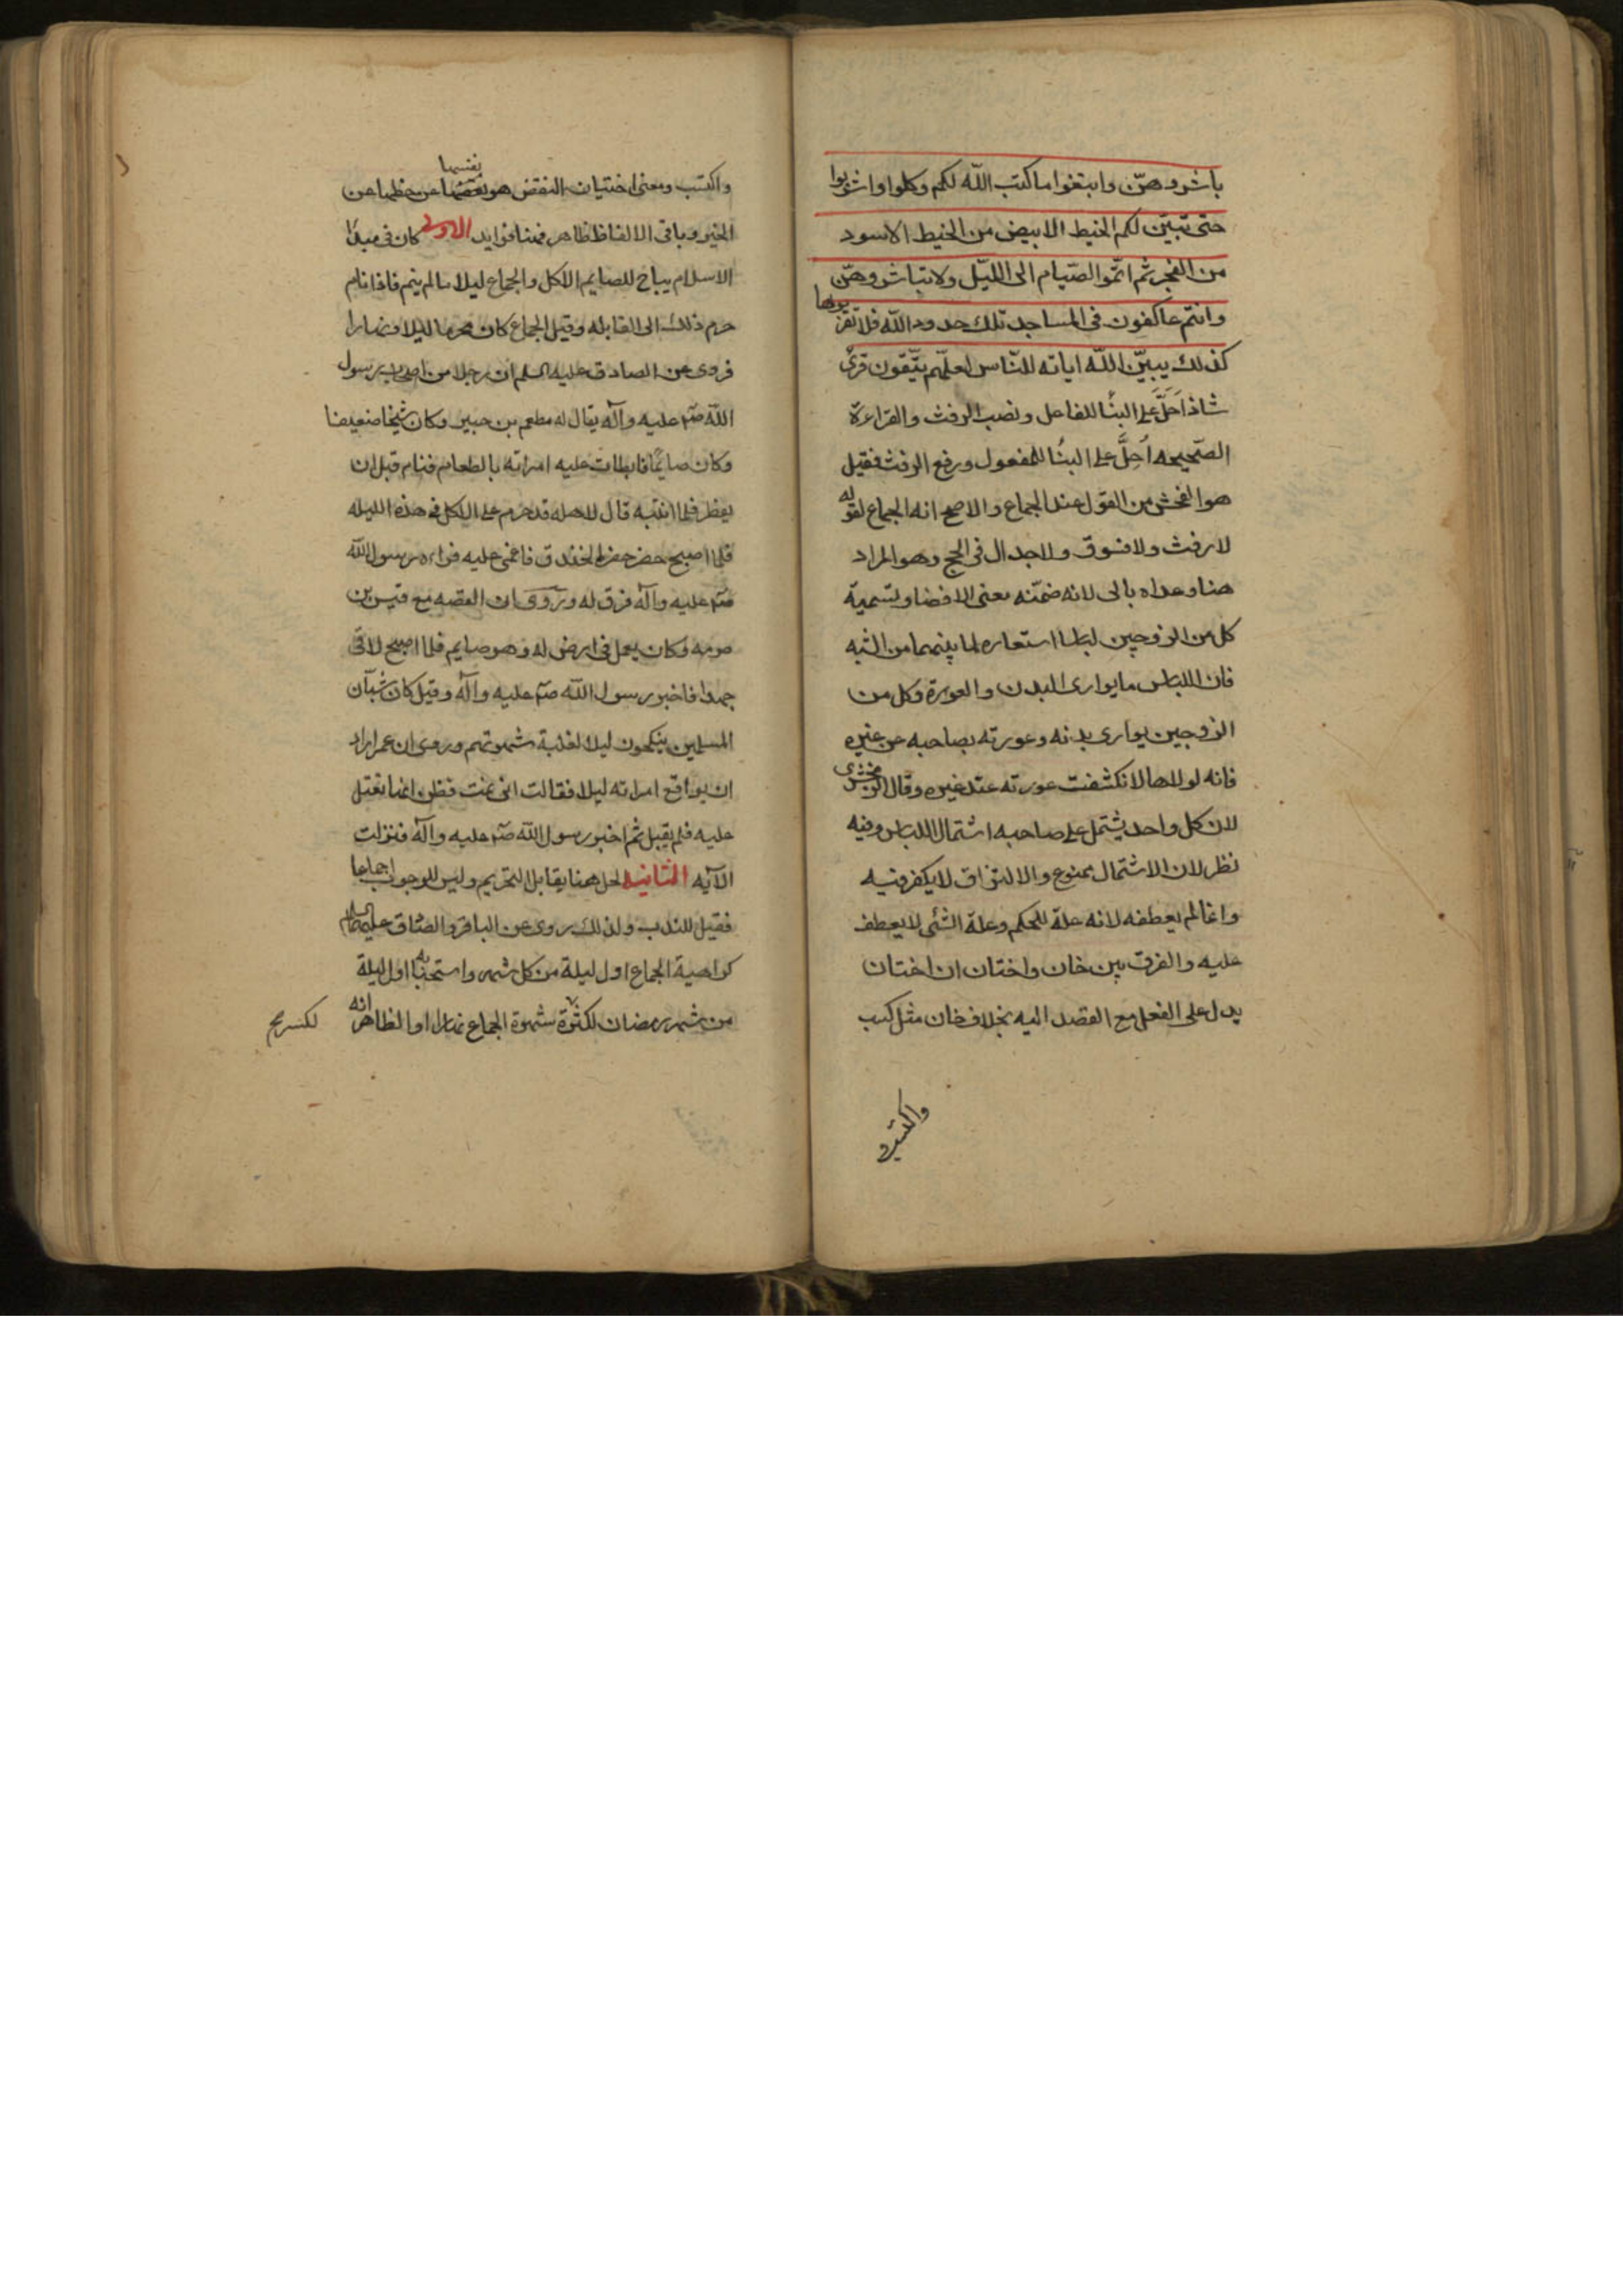 باشروهنّ وابتغوا ما كتب اللّه لكم وكلوا واشربوا
حتى تبيّن لكم الخيط الابيض من الخيط الاسود
من الفجر ثم اتمّوا الصّيام الى اللّيل ولا تباشروهنّ
وانتم عاكفون فى المساجد تلك حدود اللّه فلا تقربوها
كذلك يبيّن اللّه اياته للنّاس لعلّهم يتّقون قرئ
شاذا اَحَلَّ على البنا للفاعل ونصب الرفث والقراءة
الصّحيحه اُحِلَّ على البنا للمفعول ورفع الرفث فقيل
هو الفحش من القول عند الجماع والاصح انه الجماع لقوله
لا رفث ولا فسوق ولا جدال فى الحج وهو المراد
هنا وعداه بالى لانه ضمّنه معنى الافضا وتسمية
كل من الزوجين لباسا استعاره لما بينهما من الشبه
فان اللباس ما يوارى البدن والعورة وكل من
الزوجين يوارى بدنه وعورته بصاحبه عن غيره
فانه لولاها لانكشفت عورته عند غيره وقال الزمخشرى
لان كل واحد يشتمل على صاحبه اشتمال اللباس وفيه
نظر لان الاشتمال ممنوع والالتزاق لا يكفى فيه
وانما لم يعطفه لانه علة للحكم وعلة الشئ لا يعطف
عليه والفرق بين خان واختان ان اختان
يدل على الفعل مع القصد اليه بخلاف خان مثل كسب
واكتسب
واكتسب ومعنى اختيان النفس هو نقصها عن حظها من
الخير وباقى الالفاظ ظاهر فهنا فوايد الاولى كان فى مبدا
الاسلام يباح للصايم الاكل والجماع ليلا ما لم ينم فاذا نام
حرم ذلك الى القابله وقيل الجماع كان محرما ليلا ونهارا
فروى عن الصادق عليه السلم ان رجلا من اصحاب رسول
اللّه صم عليه وآله يقال له مطعم بن جبير وكان شيخا ضعيفا
وكان صايما فابطات عليه امراته بالطعام فنام قبل ان
يفطر فلما انتبه قال لاهله قد حرم على الاكل فى هذه الليله
فلما اصبح حضر حفر الخندق فاغمى عليه فراه رسول اللّه
صم عليه وآله فرق له وروى ان القصه مع قيس بن
صرمه وكان يعمل فى ارض له وهو صايم فلما اصبح لاقى
جهدا فاخبر رسول اللّه صم عليه وآله وقيل كان شبان
المسلمين ينكحون ليلا لغلبة شهوتهم وروى ان عمر اراد
ان يواقع امراته ليلا فقالت انى نمت فظن انها تعتل
عليه فلم يقبل ثم اخبر رسول اللّه صم عليه وآله فنزلت
الآيه الثانيه الحل هنا يقابل التحريم وليس للوجوب اجماعا
فقيل للندب ولذلك روى عن الباقر والصادق عليهما السلام
كراهية الجماع اول ليلة من كل شهر واستحبابه اول ليلة
من شهر رمضان لكثرة شهوة الجماع نهارا والظاهر انه